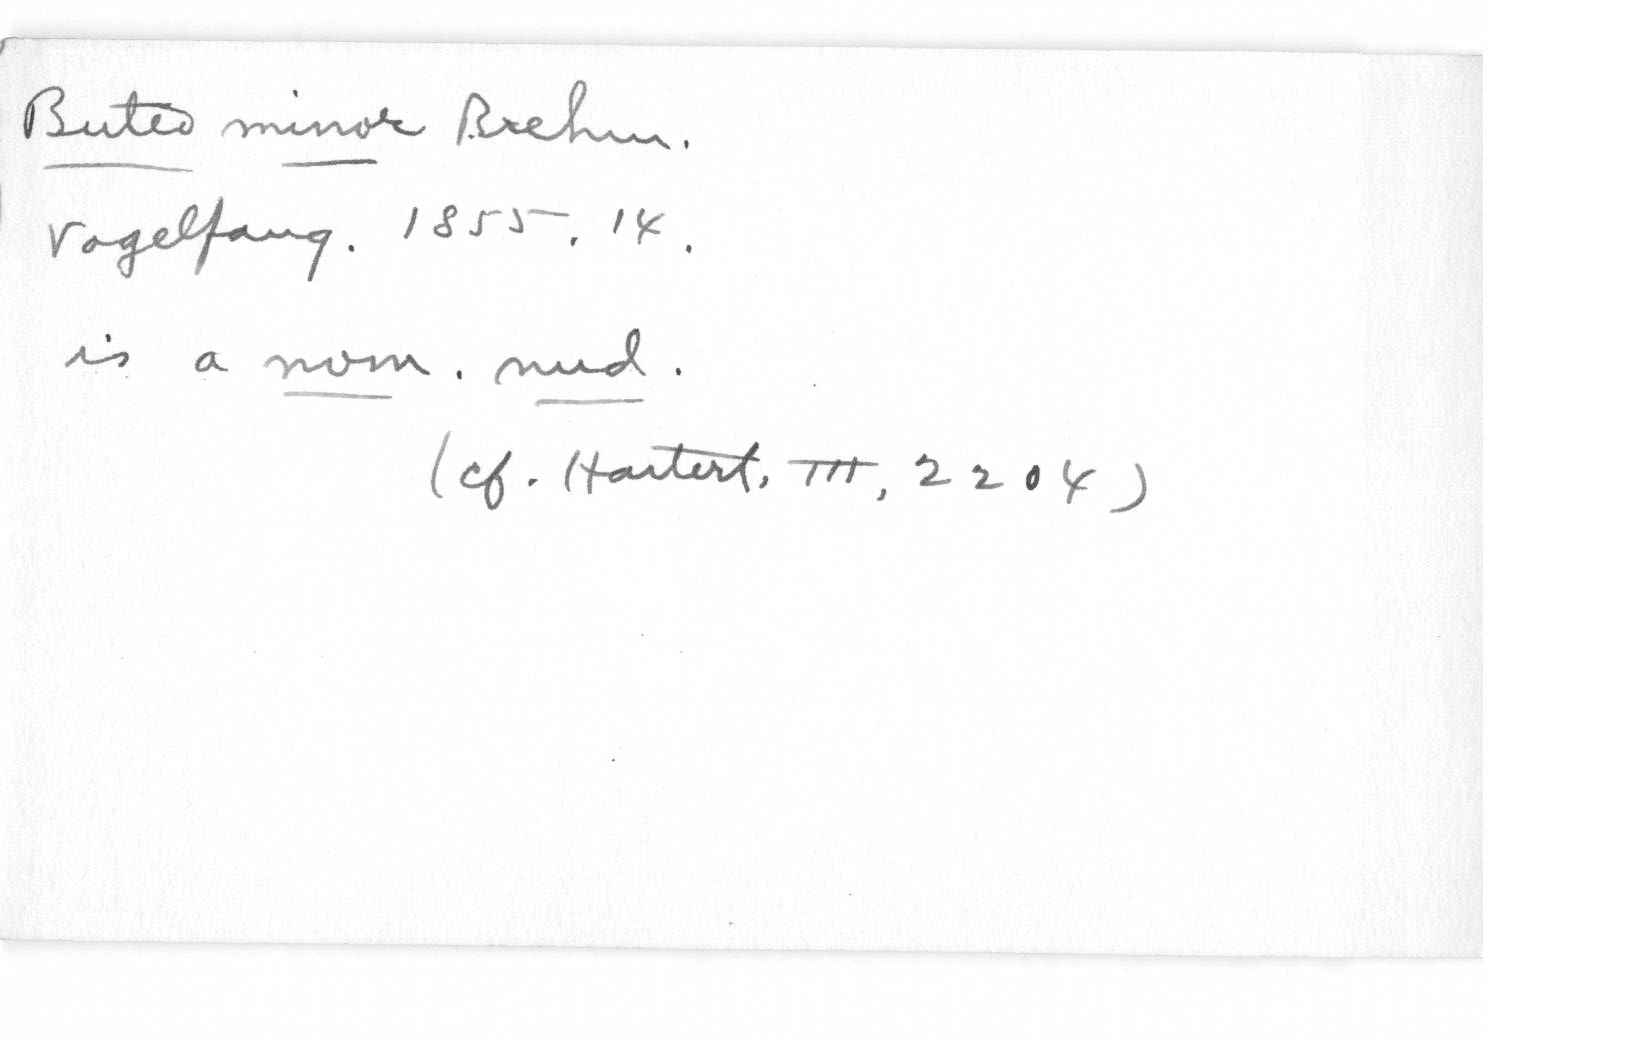 Buteo minor Brehm.
Vogelfang. 1855, 14.
is a nom. nud.
(cf. Hartert, III, 2204)